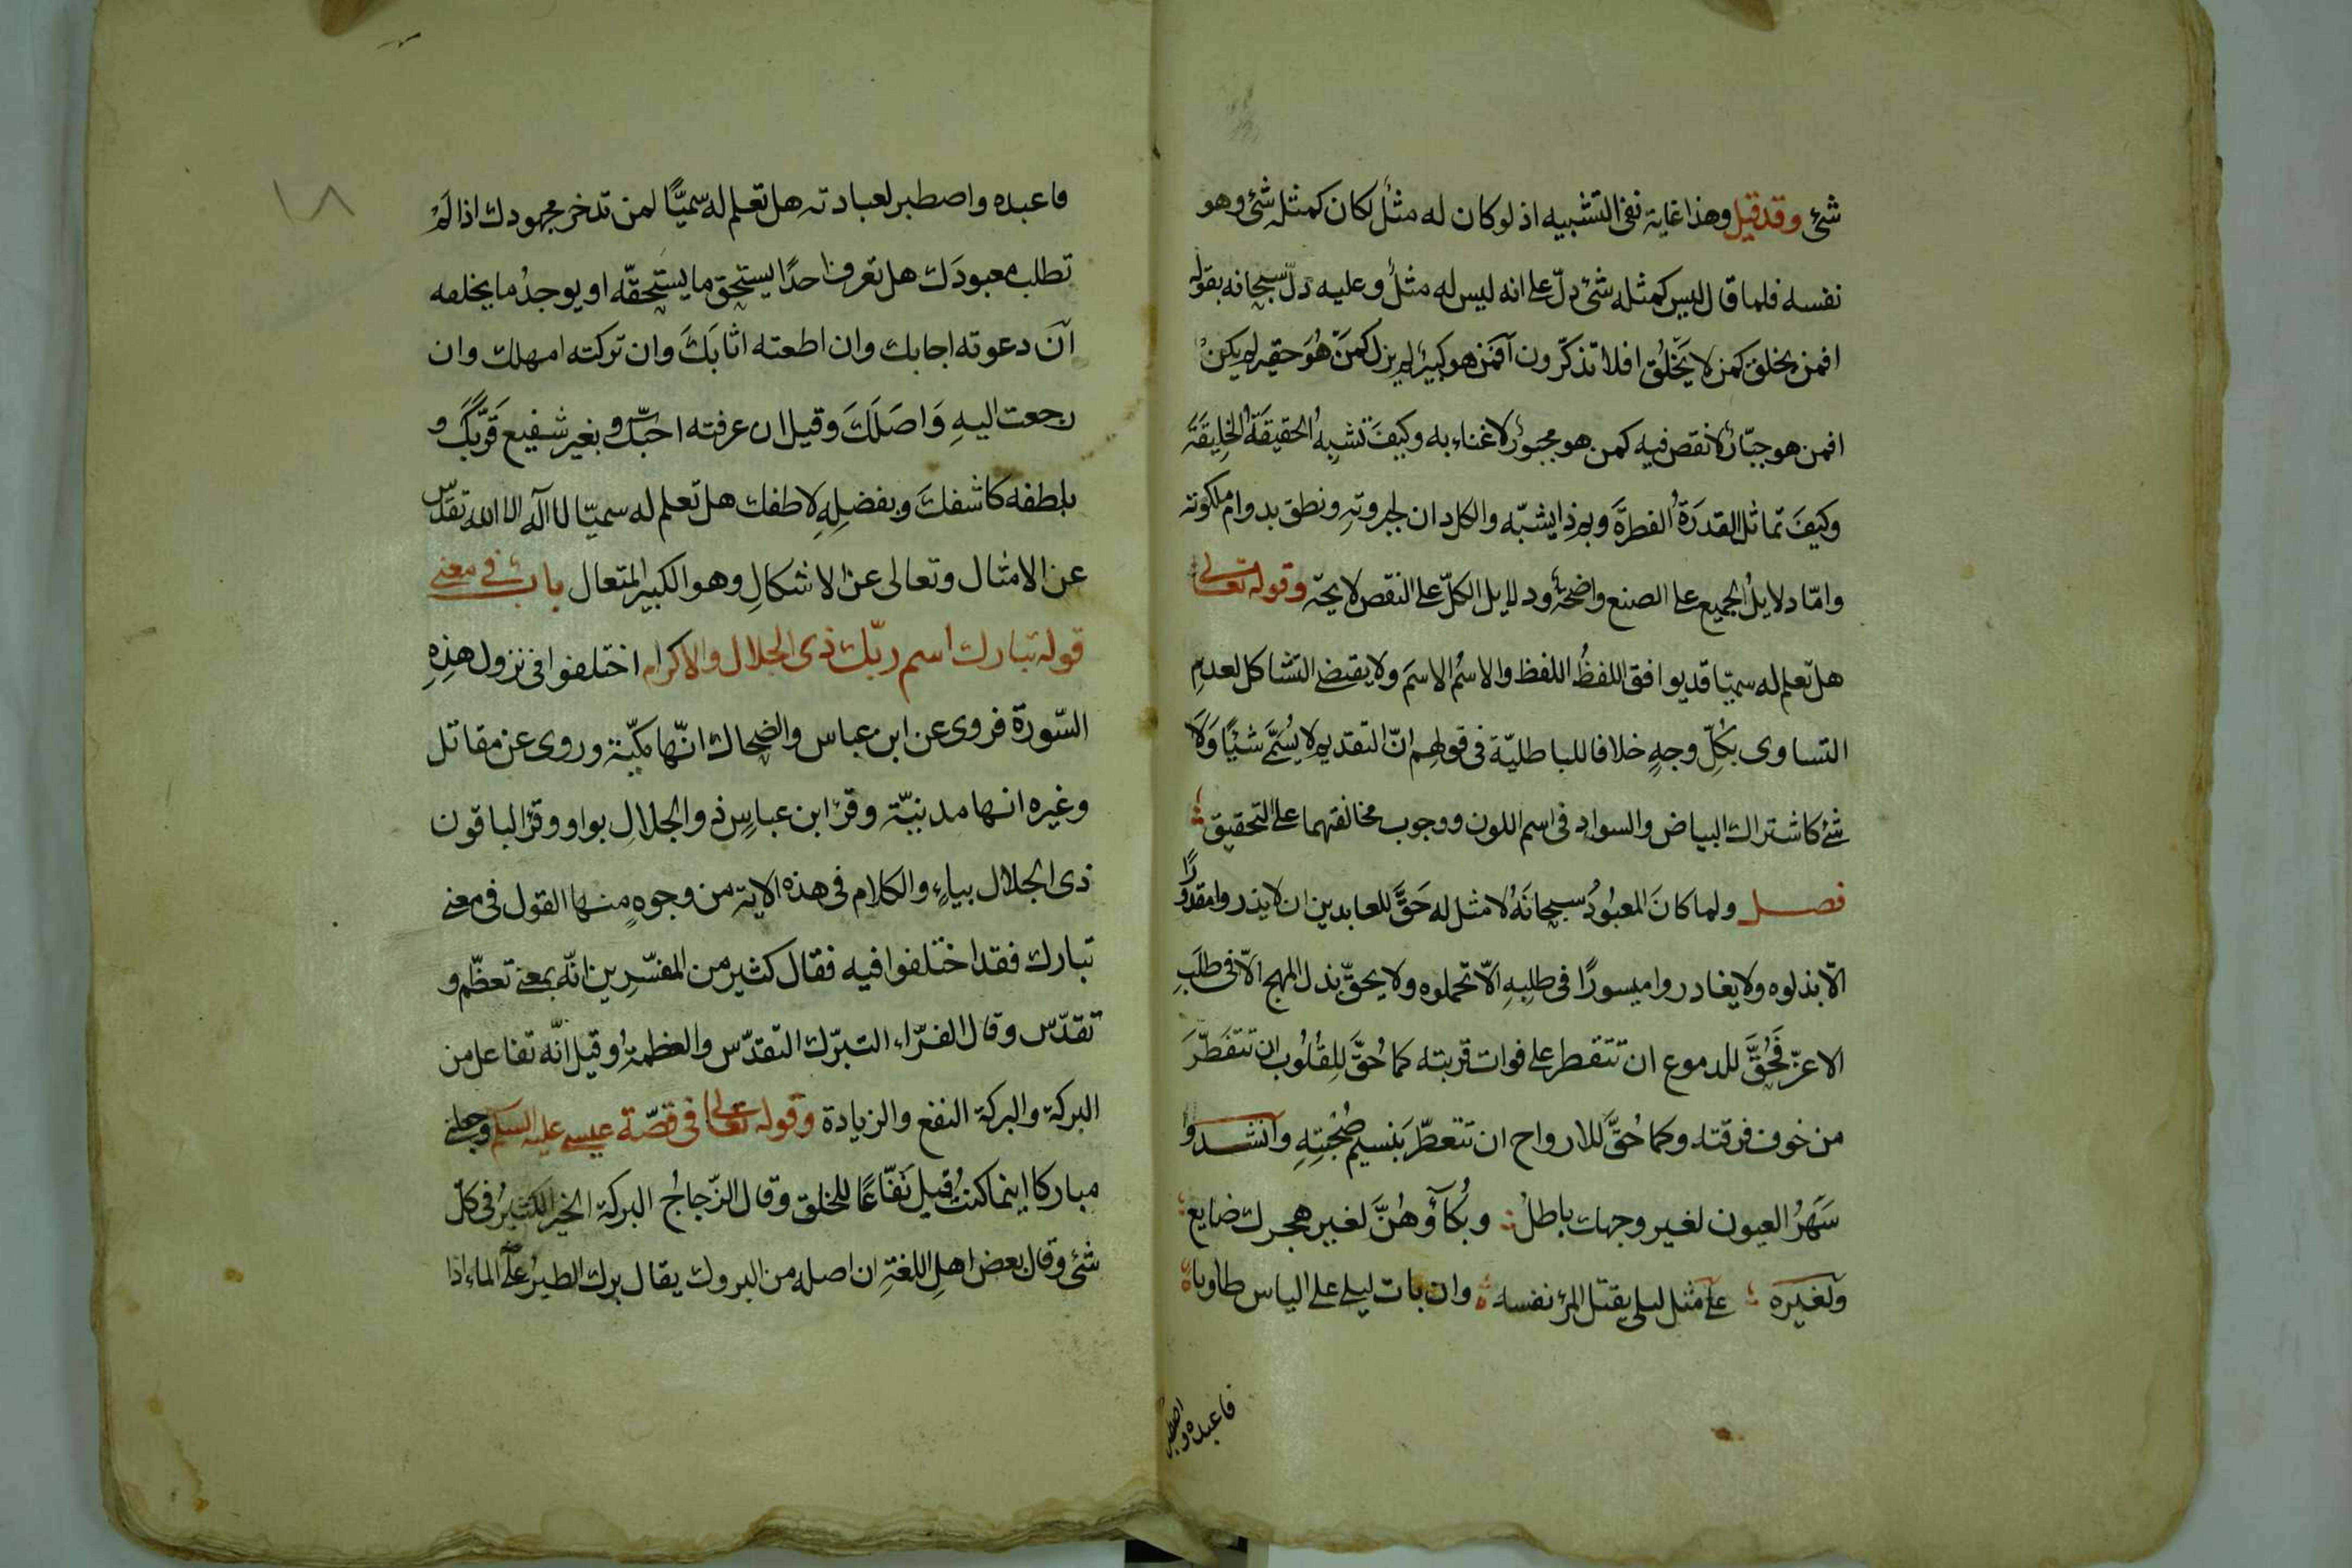 شئ وقد قيل وهذا غاية نفى التشبيه اذ لو كان له مثلٌ لكان كمثله شئ وهو
نفسه فلما قال ليس كمثله شئ دلّ على انه ليس له مثلٌ وعليه دلّ سبحانه بقوله
افمن يخلق كمن لا يَخْلُق افلا تذكّرون آفَمَن هو كبيرٌ لم يزل كَمَنْ هُوَ حقير لم يكنْ
افمن هو جبّارٌ لا نقص فيه كمن هو مجبورٌ لا غناء به وكيفَ تشبِهُ الحقيقَةُ الخليقَةَ
وكيفَ تماثل القدرَةُ الفطرَةَ وبم ذا يشبّه والكل دان لجبروتهِ ونطق بدوام ملكوته
وامّا دلايلُ الجميع على الصنع واضحةٌ ودلايل الكلّ على النقص لايحة وقوله تعالى
هل تعلم له سميّا قد يوافق اللفظُ اللفظ والاسمُ الاسمَ ولا يقتضى التشاكل لعدمِ
التساوى بكلِّ وجهٍ خلافا للباطليّة فى قولهم انّ التقديم لا يُسَمَّى شيئًا وَلَا
شئ كاشتراك البياض والسوادِ فى اسم اللون ووجوب مخالفتهما على التحقيق
فصل ولما كانَ المعبُودُ سبحانَهُ لا مثل له حَقَّ للعابدين ان لا يذروا مقدورًا
الّا بذلوه ولا يغادروا ميسورًا فى طلبِهِ الّا تحملوه ولا يحقّ بذل المهج الّا فى طلَبِ
الاعزّ فَحُقَّ للدموع ان تتقطر على فوات قربته كما حُقَّ لِلقُلُوب ان تتفَطّرَ
من خوف فرقته وكما حُقَّ للارواح ان تتعطّر بنسيم صُحْبتِهِ وآنشدوا
سَهَرُ العيون لغير وجهك باطلٌ وبُكآؤُهُنَّ لغير هجرك ضايع
ولغيره على مثل ليلى يقتل المرٔ نفسه وان بات ليلى على الياس طاويا
فاعبده واصطبر
١٨
فاعبده واصطبر لعبادته هل تعلم له سميًّا لمن تدخر مجهودك اذا لَمْ
تطلب معبودَك هل تعرف احدًا يستحق ما يستحقّه او يوجدُ ما يخلقه
آنَ دعوته اجابك وان اطعته اثابَكَ وان تركته امهلك وان
رجعت اليهِ وَاصَلَكَ وقيل ان عرفته احبّك وبغير شفيع قَرَّبَكَ و
بلطفه كاشفكَ وبفضلِهِ لاطفك هل تعلم له سميّا لا آله الا الله تقدّس
عن الامثال وتعالى عن الاشكالِ وهو الكبير المتعال بابٌ فى معنى
قوله تبارك اسم ربّك ذى الجلال والاكرام اختلفوا فى نزول هذِهِ
السّورة فروى عن ابن عباس والضحاك انّها مكيّة وروى عن مقاتل
وغيره انها مدنيّة وقرٔ ابن عباسٍ ذو الجلالِ بواو وقرٔ الباقون
ذى الجلال بياءٍ والكلام فى هذه الاية من وجوهٍ منها القول فى معنى
تبارك فقد اختلفوا فيه فقال كثير من المفسّرين انّه بمعنى تعظّم و
تقدّس وقال الفرّاء التبرّك التقدّس والعظمةُ وقيل انّه تفاعل من
البركة والبركة النفع والزيادة وقوله تعالى فى قصّة عيسى عليه السلم وجعلنى
مباركا اينما كنتُ قيل نَفّاعًا للخلق وقال الزّجاجُ البركة الخير الكثيرُ فى كلّ
شئ وقال بعض اهلِ اللغةِ ان اصله من البروك يقال برك الطيرُ على الماء اذا